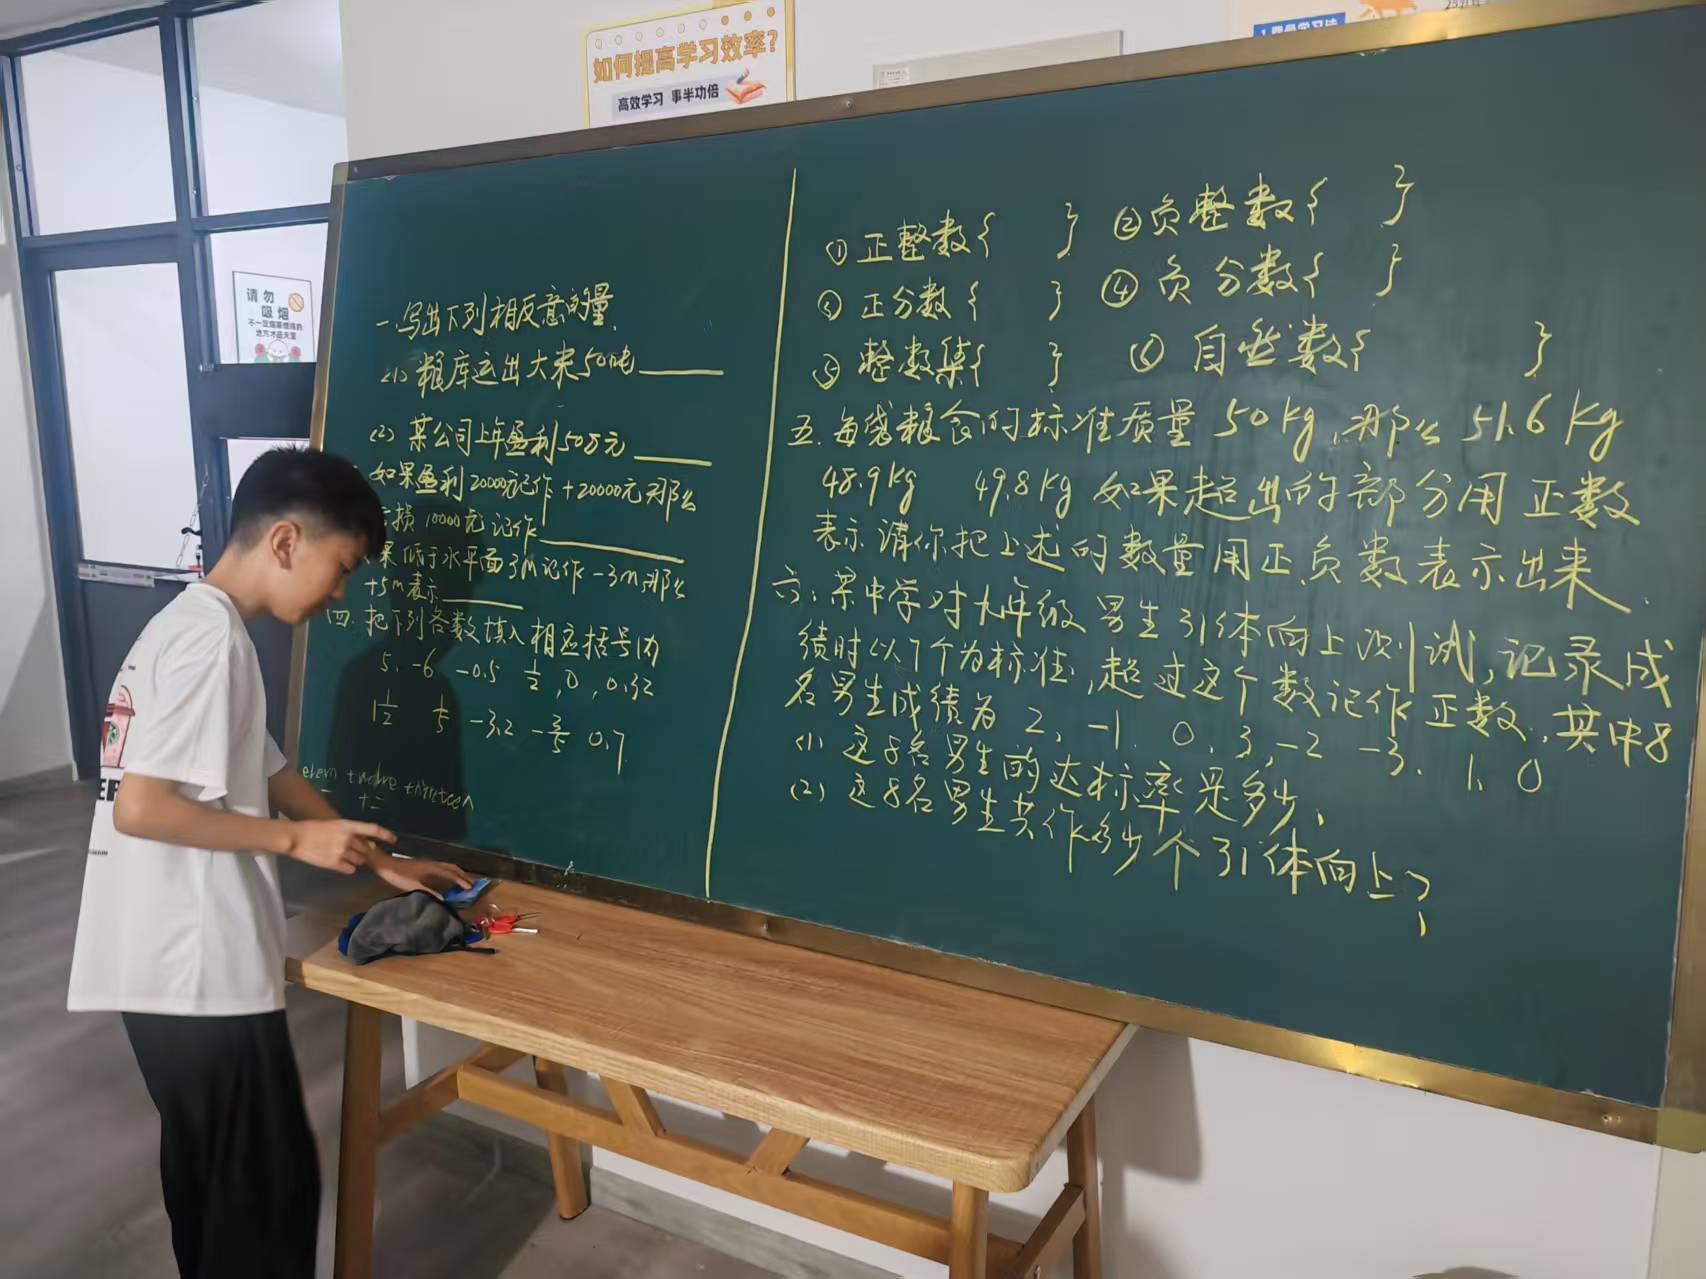 如何提高学习效率?
高效学习 事半功倍
请勿
吸烟
一.写出下列相反意的量.
(1) 粮库运出大米50吨______
(2) 某公司上年盈利50万元______
如果盈利20000元记作+20000元那么
损10000元记作______
果低于水平面3m记作-3m那么
+5m表示______
四.把下列各数填入相应括号内
5、-6 -0.5 1/2,0,0.32
1 1/2 1/5 -3.2 -3/5 0.7
twelve thirteen
①正整数{ } ②负整数{ }
③正分数{ } ④负分数{ }
⑤整数集{ } ⑥自然数{ }
五.每袋粮食的标准质量50kg,那么51.6kg
48.9kg 49.8kg 如果超出的部分用正数
表示请你把上述的数量用正负数表示出来.
六、某中学对九年级男生引体向上测试,记录成
绩时以7个为标准,超过这个数记作正数,其中8
名男生成绩为2,-1.0,3,-2 -3.1,0
(1) 这8名男生的达标率是多少.
(2) 这8名男生共作多少个引体向上?